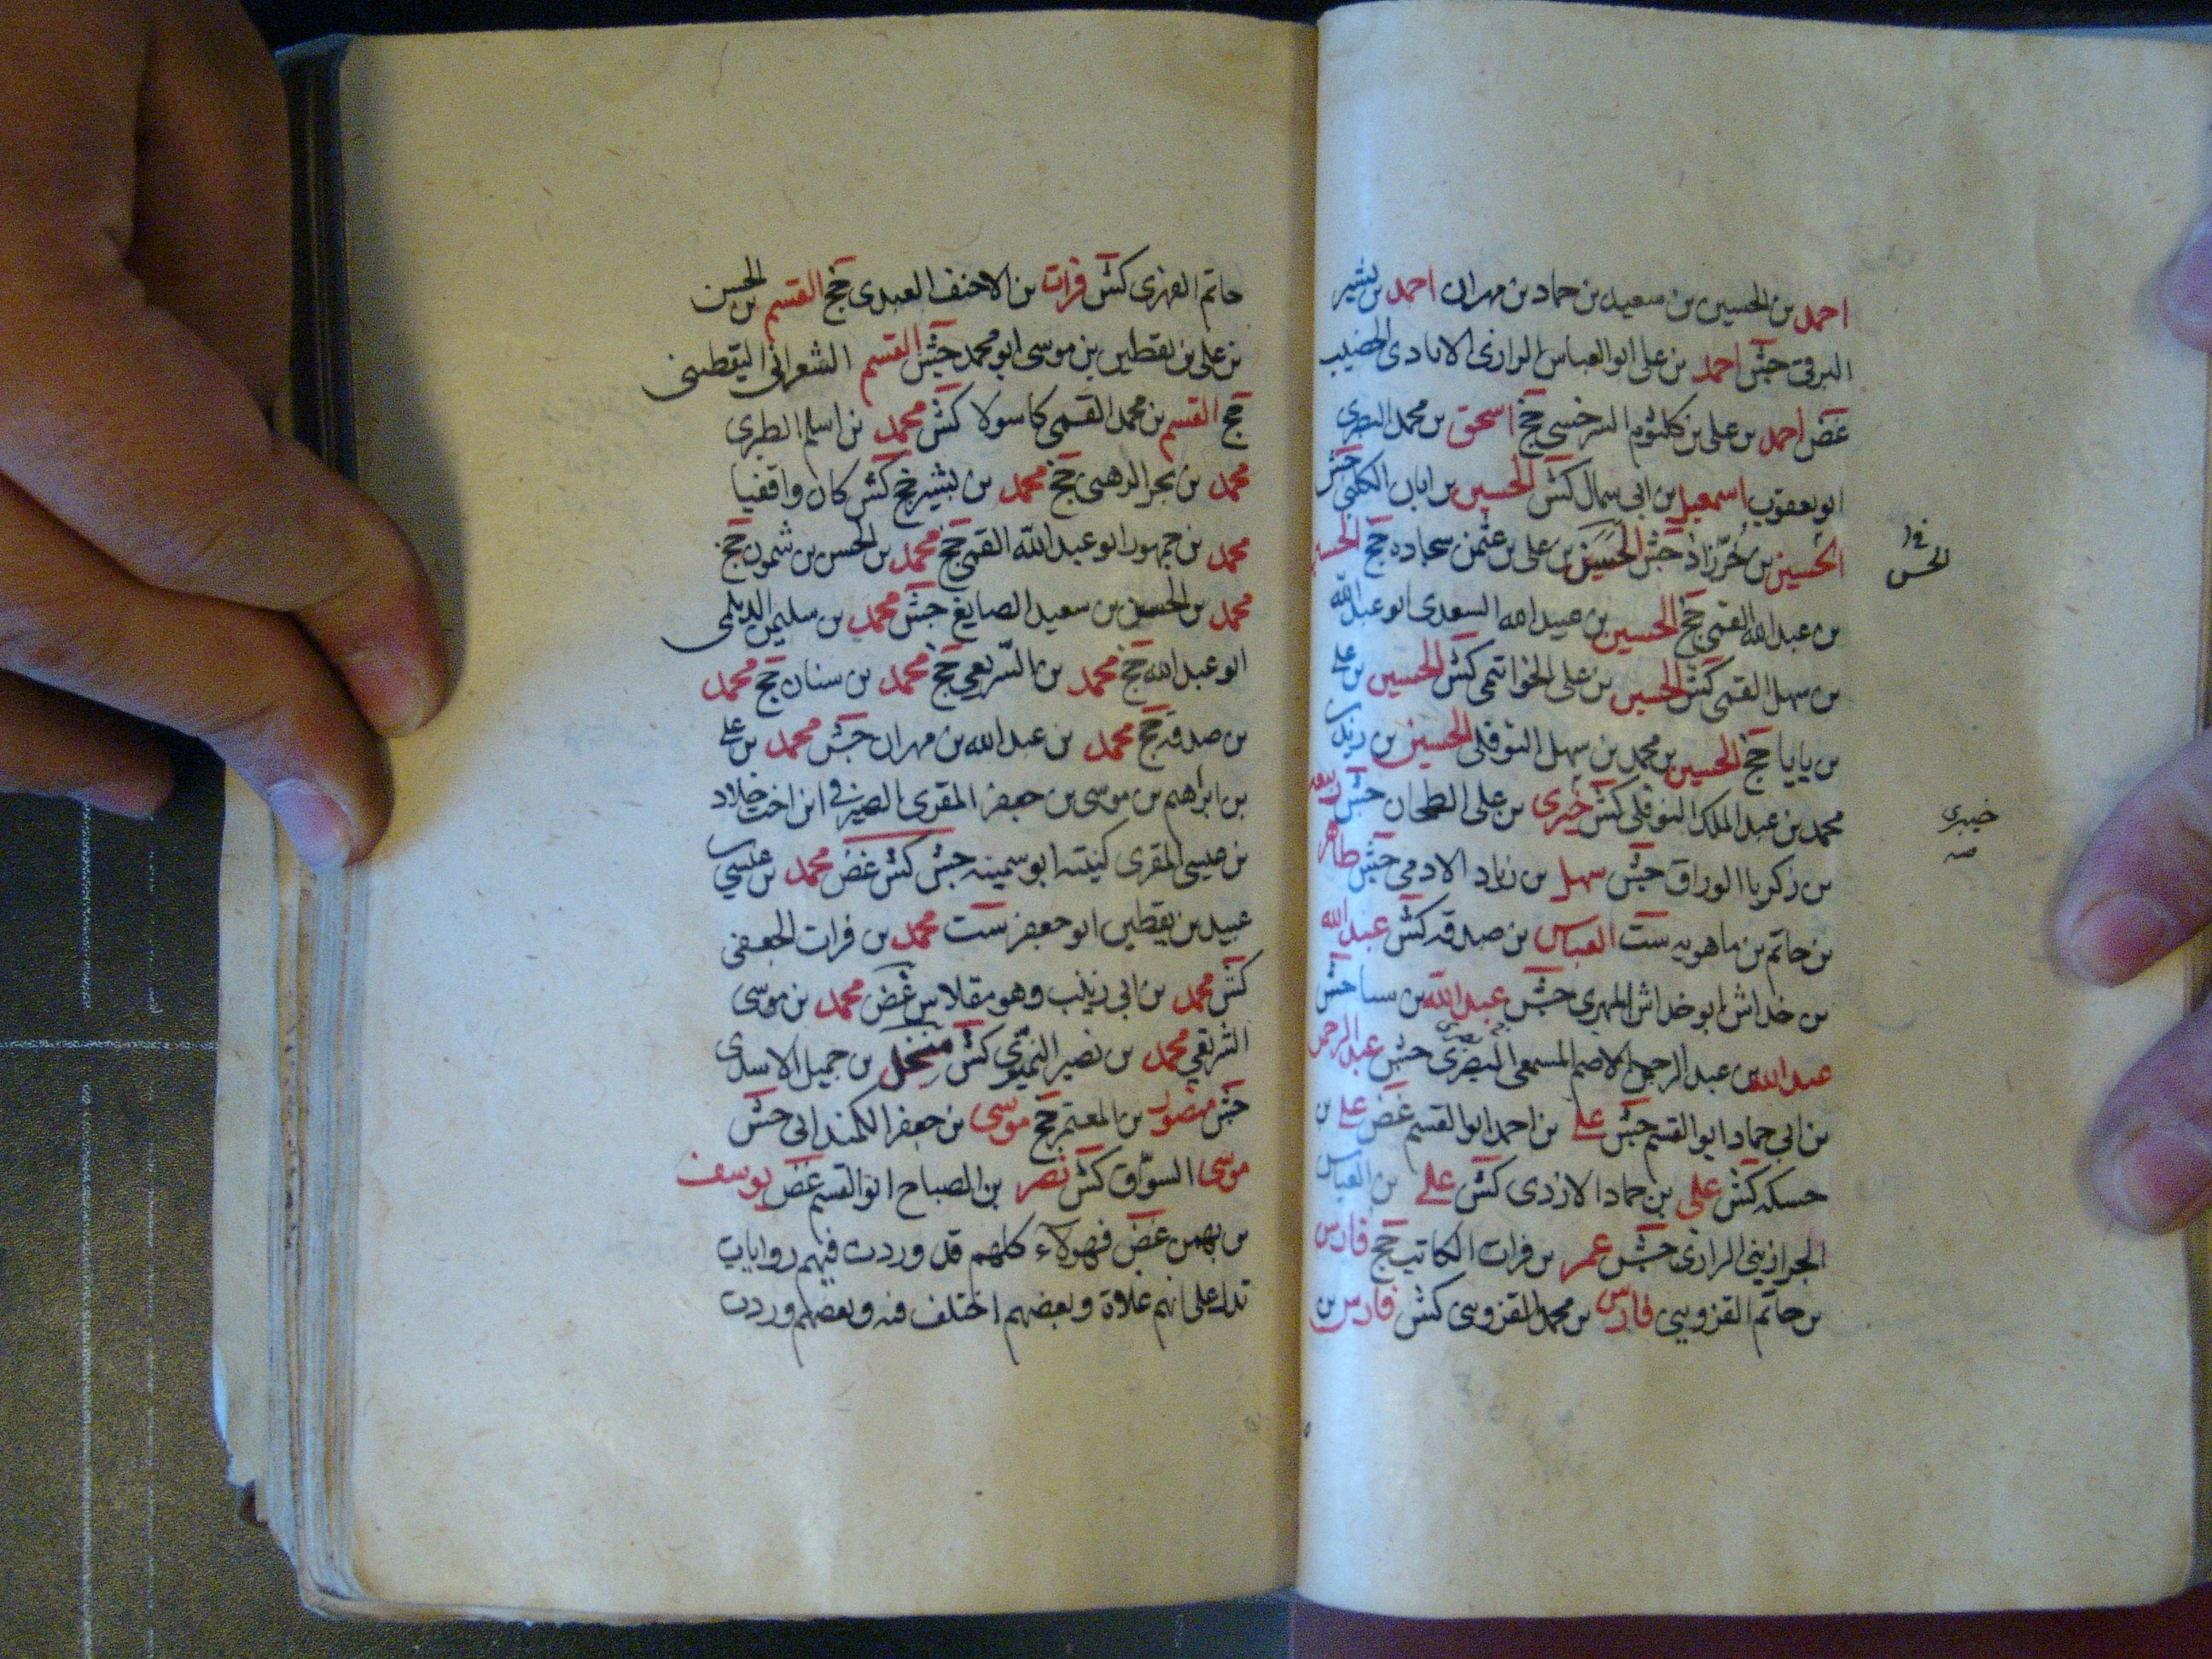 احمد بن الحسين بن سعيد بن حماد بن مهران احمد بن بشير
البرقي جش احمد بن علي ابو العباس الرازي الايادي الخضيب
غض احمد بن علي بن كلثوم السرخسي جخ اسحق بن محمد البصري
ابو يعقوب اسمعيل بن ابي سمال كش الحسين بن ابان الكلبي جش
الحسين بن خرزاذ جش الحسين بن علي بن عثمن سجاده جخ الحسين
في د
الحسن
بن عبد الله القمي جخ الحسين بن عبيد الله السعدي ابو عبد الله
بن سهل القمي كش الحسين بن علي الخواتمي كش الحسين بن علي
بن يايا جخ الحسين بن محمد بن سهل النوفلي الحسين بن يزيد
محمد بن عبد الملك النوفلي كش خيرى بن علي الطحان جش ربيع
خيبرى
صه
بن زكريا الوراق جش سهل بن زياد الادمي جش طاهر
بن حاتم بن ماهويه ست العباس بن صدقه كش عبد الله
بن خداش ابو خداش المهري جش عبد الله بن سبا جش
عبد الله بن عبد الرحمن الاصم المسمعي البصري جش عبد الرحمن
بن ابي حماد ابو القسم جش علي بن احمد ابو القسم غض علي بن
حسكه كش علي بن حماد الازدي كش علي بن العباس
الجراذيني الرازي جش عمر بن فرات الكاتب جخ فارس
بن حاتم القزويني فارس بن محمد القزويني كش فارس بن
حاتم الفهرى كش فرات بن الاحنف العبدى جخ القسم بن الحسن
بن علي بن يقطين بن موسى ابو محمد جش القسم الشعراني اليقطيني
جخ القسم بن محمد القمي كاسولا كش محمد بن اسلم الطبري
محمد بن بحر الرهني جخ محمد بن بشير جخ كش كان واقفيا
محمد بن جمهور ابو عبد الله القمي جخ محمد بن الحسن بن شمون جخ
محمد بن الحسين بن سعيد الصايغ جش محمد بن سليمن الديلمي
ابو عبد الله جخ محمد بن السريعي جخ محمد بن سنان جخ محمد
بن صدقه جخ محمد بن عبد الله بن مهران جش محمد بن علي
بن ابراهيم بن موسى بن جعفر المقرى الصيرفي ابن اخت خلاد
بن عيسى المقرى كنيته ابو سمينه جش كش غض محمد بن عيسى
عبيد بن يقطين ابو جعفر ست محمد بن فرات الجعفي
كش محمد بن ابي زينب وهو مقلاس غض محمد بن موسى
الشريقي محمد بن نصير النميري كش منخل بن جميل الاسدى
جش منصور بن المعتمر جخ موسى بن جعفر الكمنداني جش
موسى السواق كش نصر بن الصباح ابو القسم غض يوسف
بن بهمن غض فهولاء كلهم قد وردت فيهم روايات
تدل على انهم غلاة وبعضهم اختلف فيه وبعضهم وردت